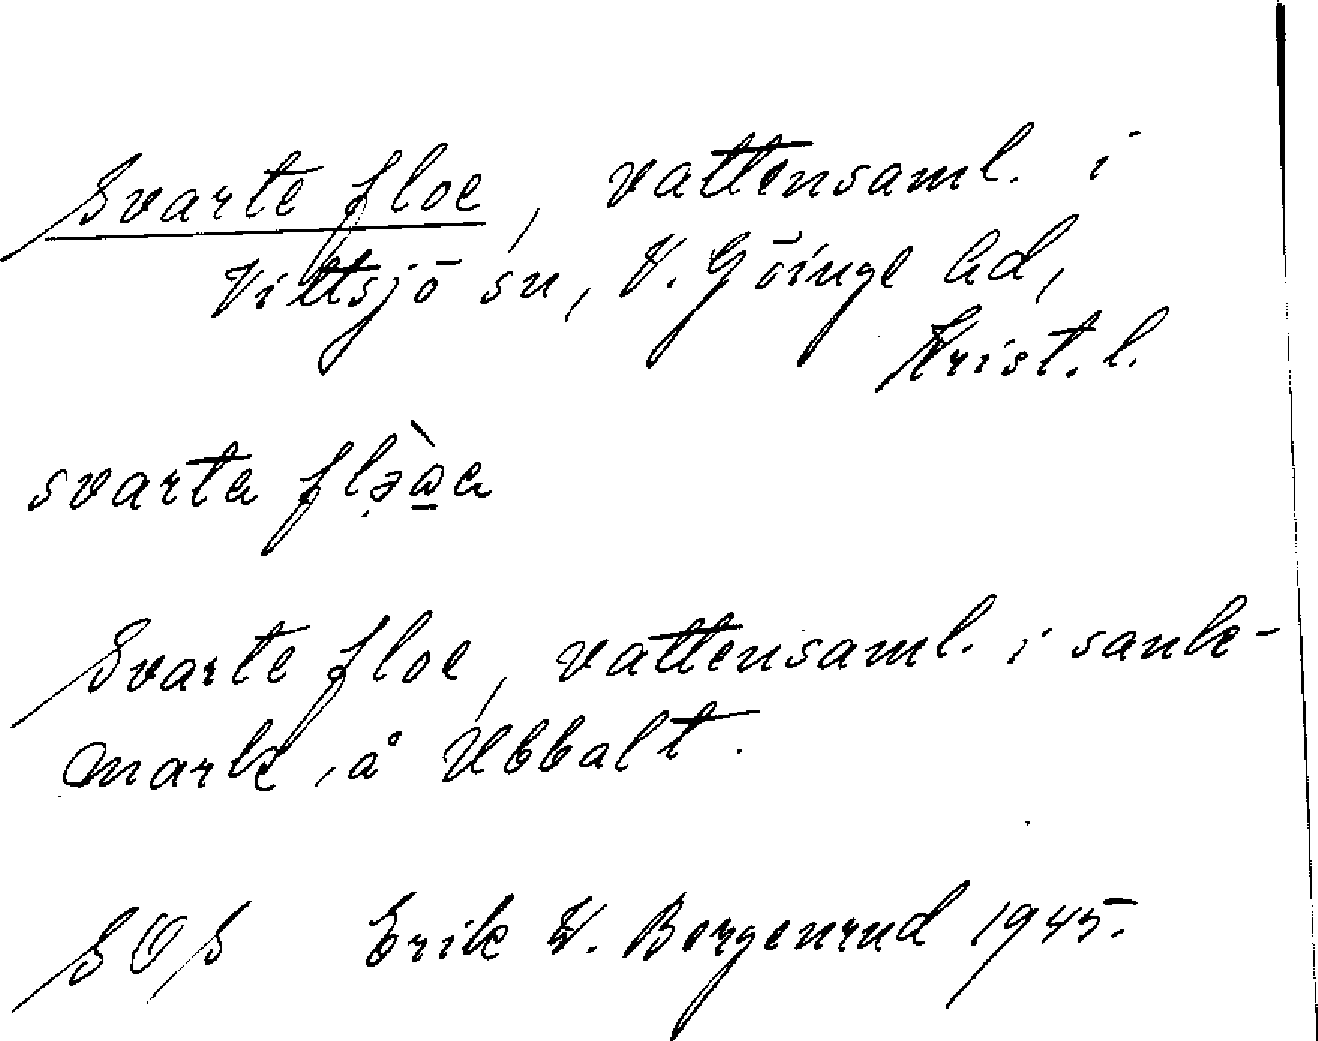 Svarte floe, vattensaml. i
Vittsjö sn, V. Göinge hd,
Krist. l.
svarta flə̣̀o̲a
Svarte floe, vattensaml. i sank-
mark, å Ubbalt.
SOS Erik W. Bergenrud 1945.